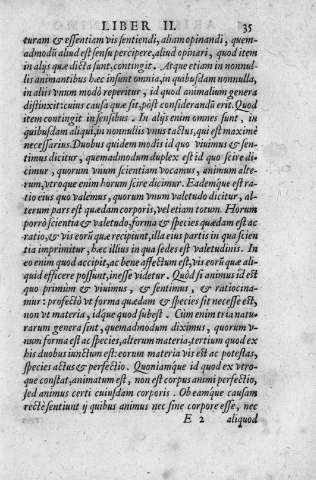 LIBER II. 35
turam & essentiam vis sentiendi, aliam opinandi, quem-
admodũ aliud est sensu percipere, aliud opinari, quod item
in alijs quæ dicta sunt, contingit. Atque etiam in nonnul-
lis animantibus hæc insunt omnia, in quibusdam nonnulla,
in aliis vnum modò reperitur, id quod animalium genera
distinxit: cuius causa quæ sit, pòst considerandũ erit. Quod
item contingit in sensibus. In alijs enim omnes sunt, in
quibusdam aliqui, in nonnullis vnus tactus, qui est maximè
necessarius. Duobus quidem modis id quo viuimus & sen-
timus dicitur, quemadmodum duplex est id quo scire di-
cimur, quorum vnum scientiam vocamus, animum alte-
rum, vtroque enim horum scire dicimur. Eademq́ue est ra-
tio eius quo valemus, quorum vnum valetudo dicitur, al-
terum pars est quædam corporis, vel etiam totum. Horum
porrò scientia & valetudo, forma & species quædam est ac
ratio, & vis eorũ quæ recipiunt, illa eius partis in qua scien
tia imprimitur, hæc illius in qua sedes est valetudinis. In
eo enim quod accipit, ac bene affectum est, vis eorũ quæ ali-
quid efficere possunt, inesse videtur. Quòd si animus id est
quo primùm & viuimus, & sentimus, & ratiocina-
mur: profectò vt forma quædam & species sit necesse est,
non vt materia, idque quod subest. Cùm enim tria natu-
rarum genera sint, quemadmodum diximus, quorum v-
num forma est ac species, alterum materia, tertium quod ex
his duobus iunctum est: eorum materia vis est ac potestas,
species actus & perfectio. Quoniamque id quod ex vtro-
que constat, animatum est, non est corpus animi perfectio,
sed animus certi cuiusdam corporis. Ob eamque causam
rectè sentiunt ij quibus animus nec sine corpore esse, nec
E 2 aliquod